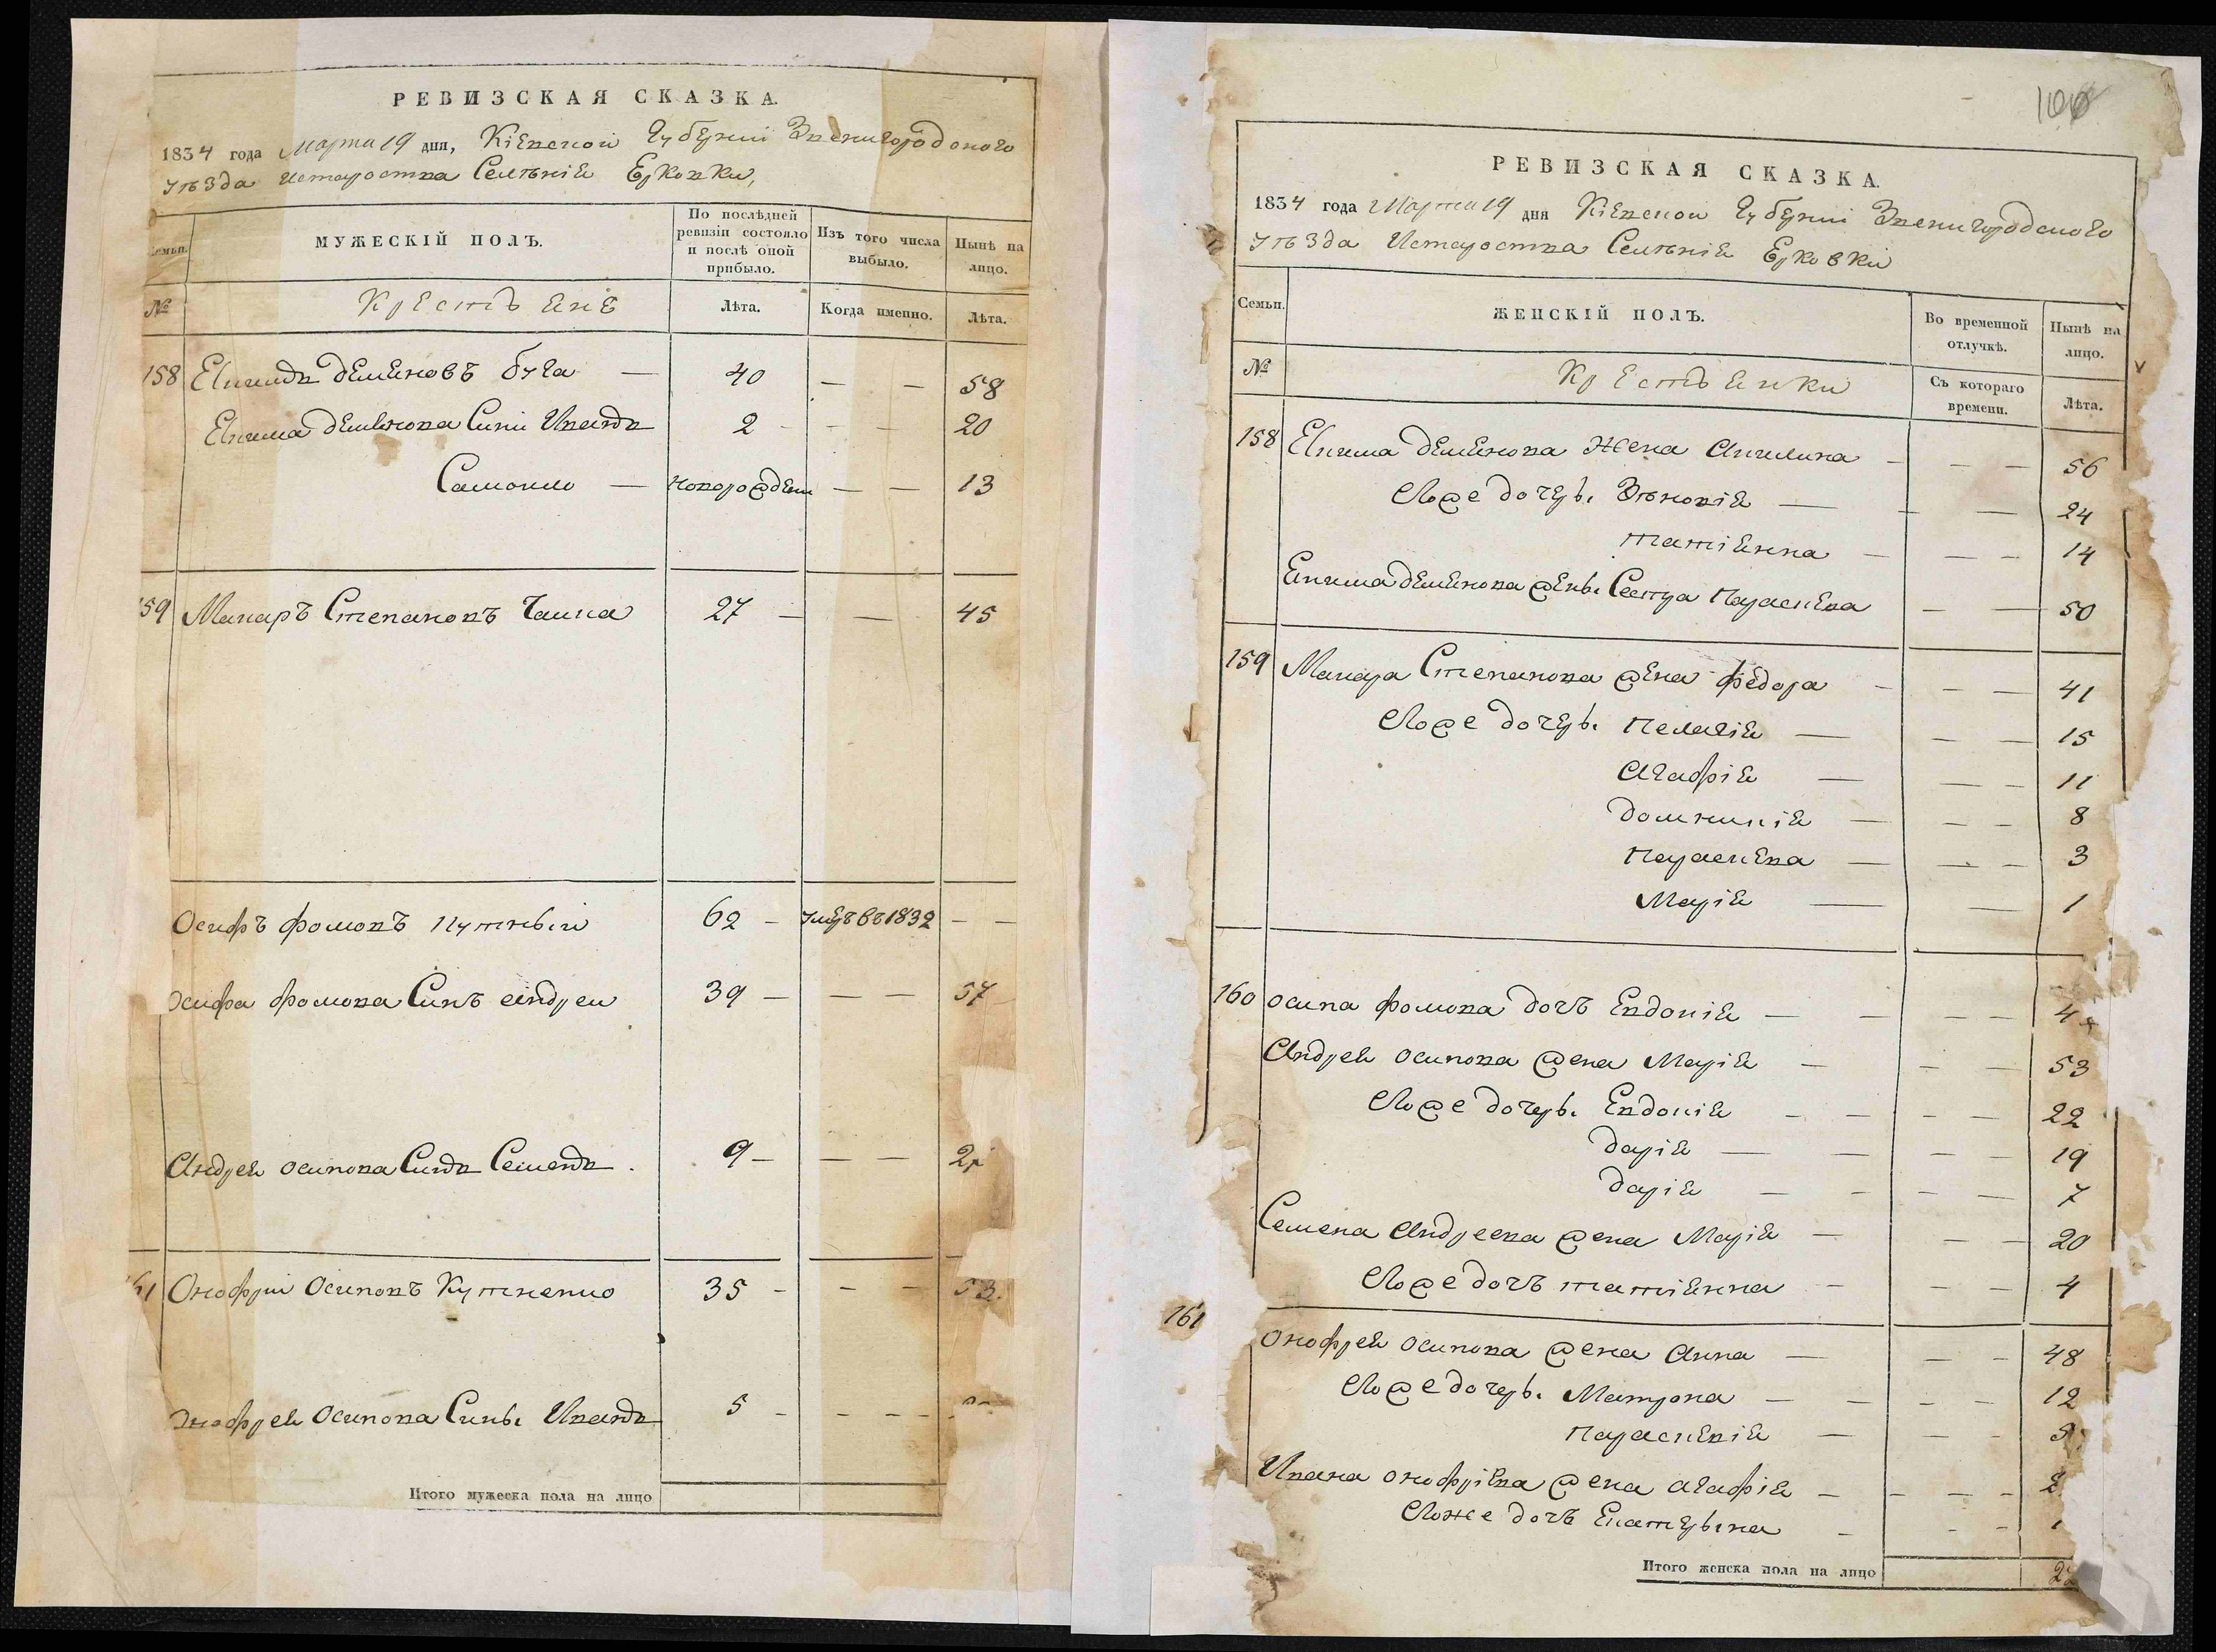 РЕВИЗСКАЯ СКАЗКА.
1834 года Марта 19 дня, Кіевской Губерніи Звенигородского
уѣзда Староства Селѣнія Ерковки,
Семьи. МУЖЕСКІЙ ПОЛЪ. По послѣдней ревизіи состояло и послѣ оной прибыло. Изъ того числа выбыло. Нынѣ на лицо.
№ Крестьяне Лѣта. Когда именно. Лѣта.
158 Екима Деменовъ Буга — 40 — — 58
Екима Деменова Синъ Иванъ 2 - - — 20
Самоило — новорожден — — 13
159 Макаръ Степановъ Чаика 27 — — 45
Осифъ Фомовъ Кутнъій 62 — умеръ въ 1832 — —
Осифа Фомова Синъ Андреи 39 — — — 57
Андрея Осипова Синъ Семенъ 9 — — —
161 Онофрій Осиповъ Кутненко 35 - - — 53.
Онофрея Осипова Синъ Иванъ 5 - - — —
Итого мужеска пола на лицо
100
РЕВИЗСКАЯ СКАЗКА.
1834 года Марта 19 дня Кіевской Губерніи Звенигородского
уѣзда Староства Селѣнія Ерковки
Семьи. ЖЕНСКІЙ ПОЛЪ. Во временной отлучкѣ. Нынѣ на лицо.
№ Крестьянки Съ котораго времени. Лѣта.
158 Екима Деменова жена Акилина — — — 56
Ево же дочерь Зѣновія — — — 24
Татіянна — — — 14
Екима Деменова Сестра Параскева — — 50
159 Макара Степанова жена Федора — — — 41
Ево же дочерь Пелагія — — — 15
Агафія — — — 11
Домникія — — — 8
Параскева — — — 3
Марія — — 1
160 Осипа Фомова дочъ Евдокія — — — —
Андрея Осипова жена Марія — — — 53
Ево же дочерь Евдокія — — — — 22
Дарія — — — — 19
Дарія — — — — 7
Семена Андреева жена Марія — — — 20
Ево же дочъ Татіянна — — — 4
161 Онофрея Осипова жена Анна — — — 48
Ево же дочерь Матрона — — — — 12
Параскевія — — -
Ивана Онофріева жена Агафія — — — —
Ево же дочъ Екатерына — - -
Итого женска пола на лицо